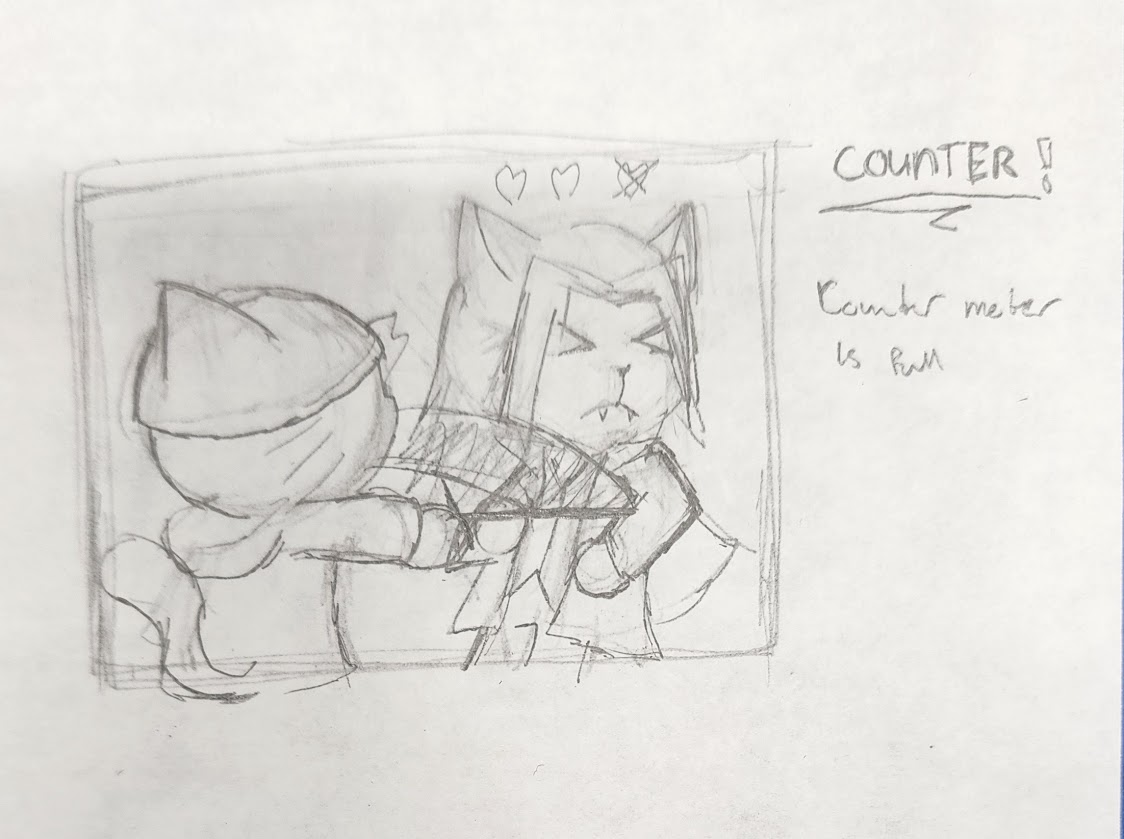 COUNTER!
Counter meter
is full